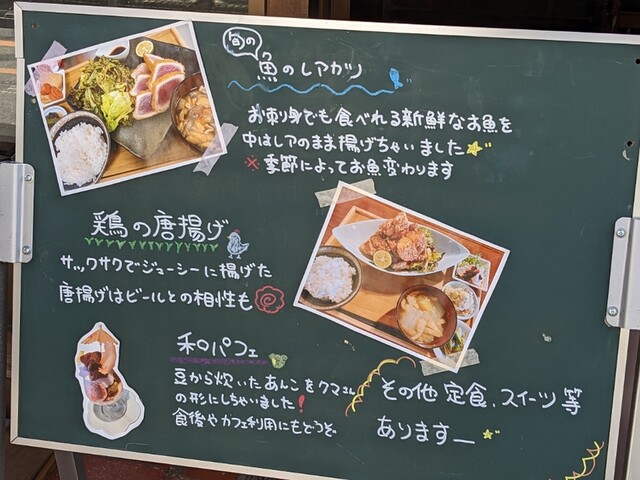 旬の
魚のレアカツ
お刺身でも食べれる新鮮なお魚を
中はレアのまま揚げちゃいました
※季節によってお魚変わります
鶏の唐揚げ
サックサクでジューシーに揚げた
唐揚げはビールとの相性も
和パフェ
豆から炊いたあんこをクマさん
の形にしちゃいました!
食後やカフェ利用にもどうぞ
その他 定食、スイーツ 等
あります